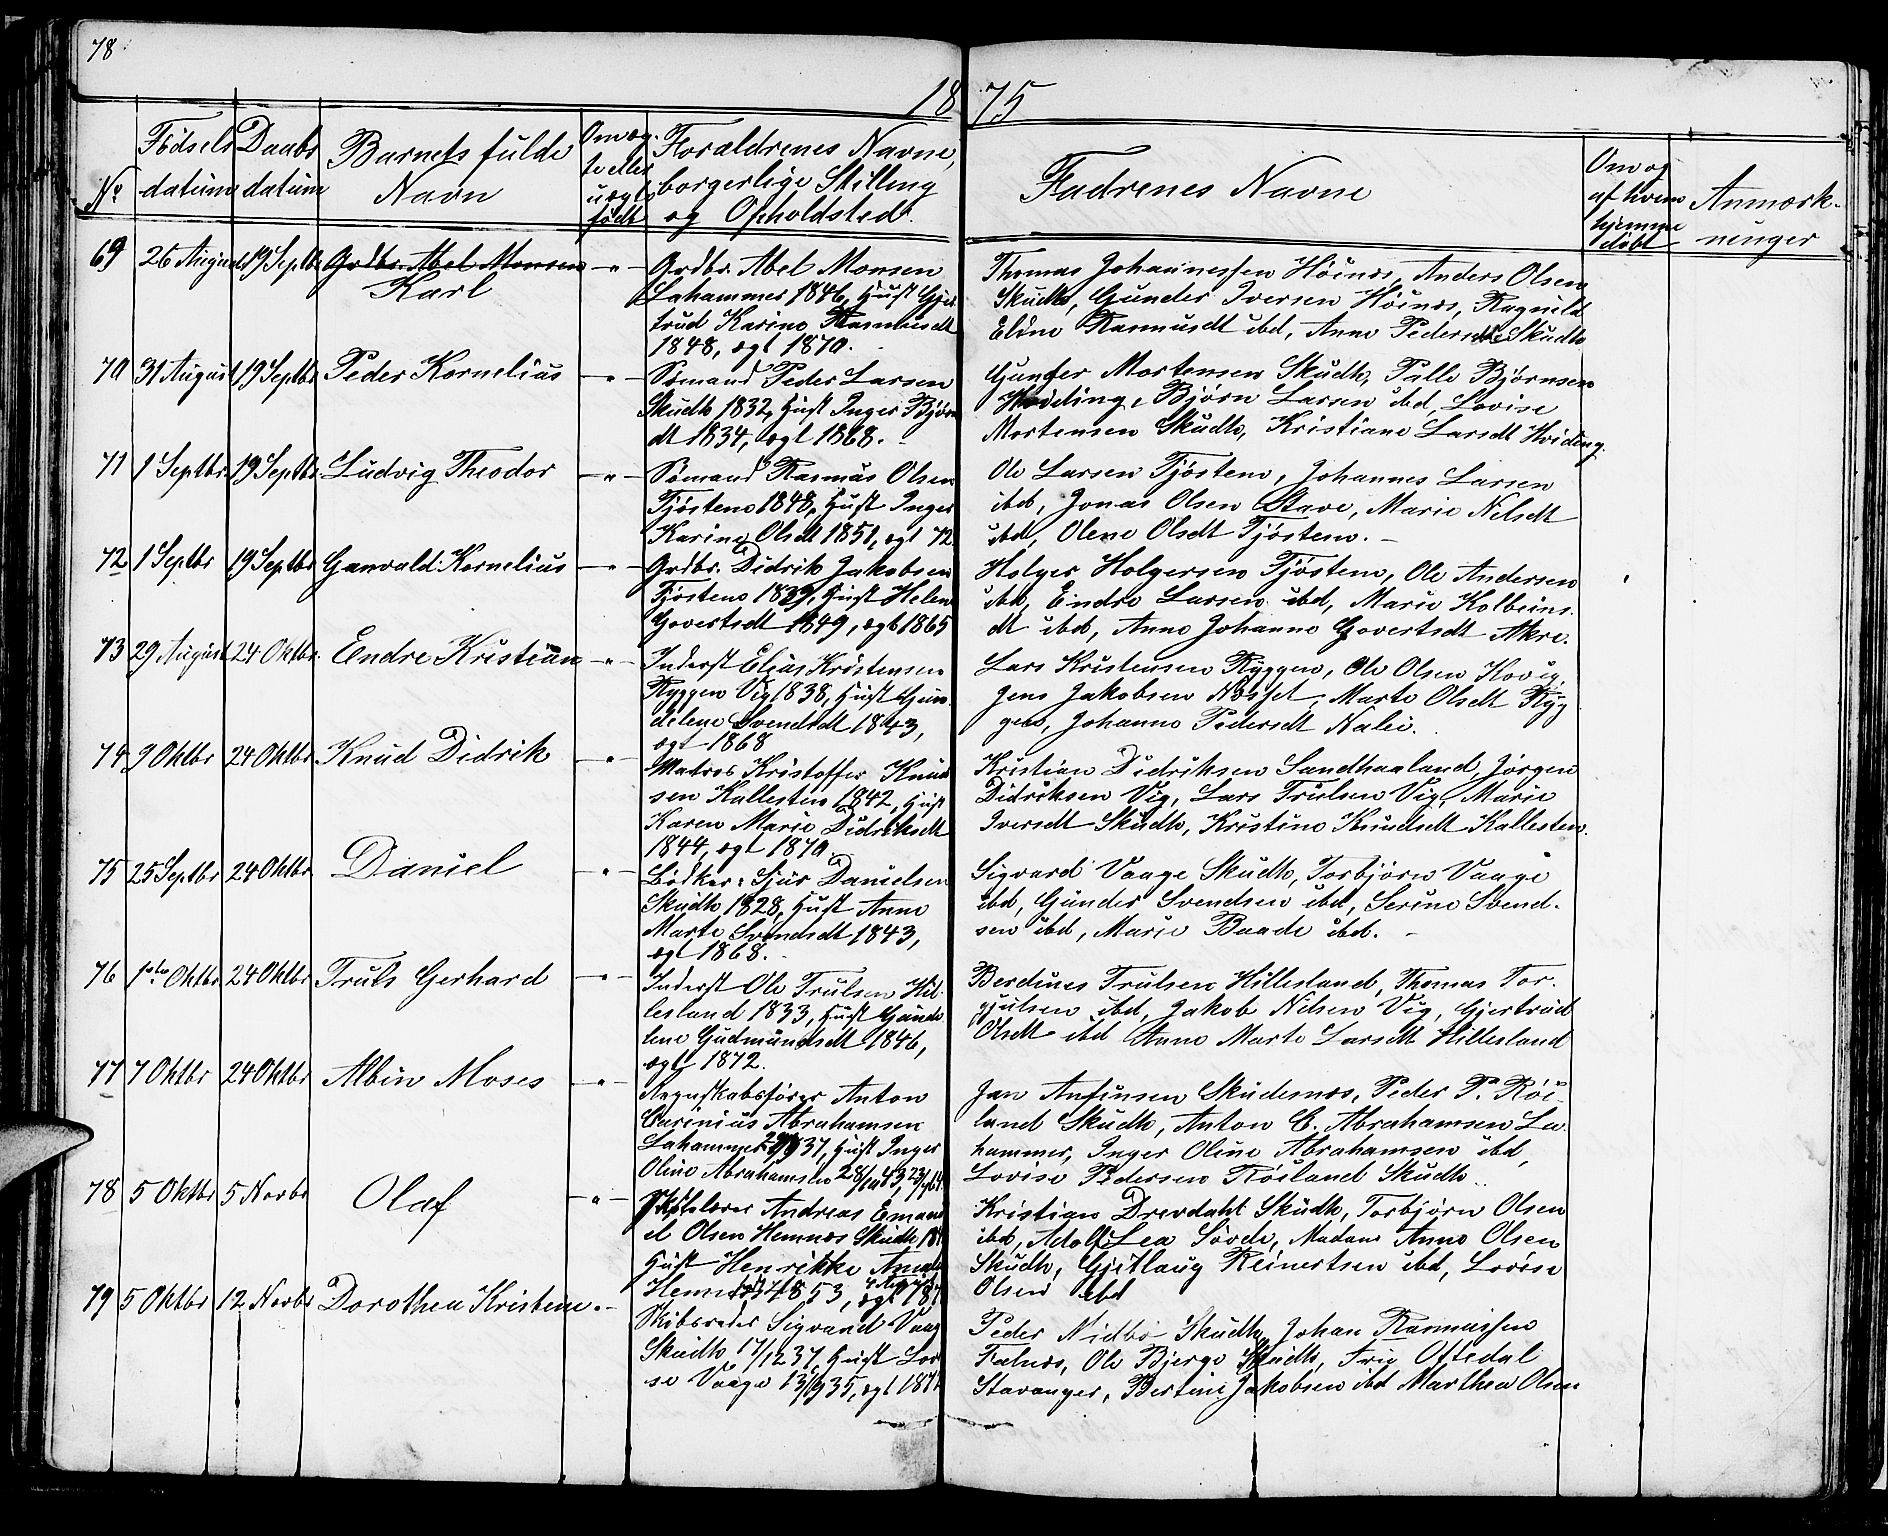 78
18 75
No
Fødsels datum
Daabs datum
Barnets fulde Navn
Om ægte eller uægte født
Forældrenes Navne, borgerlige Stilling og Opholdsted.
Fadrenes Navne
Om og af hvem hjemme døbt
Anmærkninger
69 26 August 19 Septbr Grdbr. Abel Monsen — " —
Karl
Grdbr. Abel Monsen
Lahammer 1846, Hust Gjer
trud Karine Rasmusdt
1848, ægt 1870.
Thomas Johannessen Høinæs, Anders Olsen
Skudh, Gunder Iversen Høinæs, Ragnild
Eline Rasmusdt ibd, Anne Pedersen Skudh
70 31 August 19 Septbr Peder Kornelius — " —
Sømand Peder Larsen
Skudh 1832, Hust Inger Bjørn
dt 1834, ægt 1868.
Gunder Mortensen Skudh, Palle Bjørnsen
Hviding, Bjørn Larsen ibd, Lovise
Mortensen Skudh, Kristiane Larsdt Hviding
71 1 Septbr 19 Septbr Ludvig Theodor — " —
Sømand Rasmus Olsen
Tjøsteno 1848, Hust Inger
Karine Olsdt 1851, ægt 72
Ole Larsen Tjøstem, Johannes Larsen
ibd, Jonas Olsen Stave, Marie Nelsdt
ibd, Olene Olsdt Tjøsten. —
72 1 Septbr 19 Septbr Ganvald Kornelius — " —
Grdbr. Didrik Jakobsen
Tjøsteno 1839, Hust Helen
Govertsdt 1849, ægt 1865
Holger Holgersen Tjøstem, Ole Andersen
ibd, Endre Larsen ibd, Marie Kolbeins.
dt ibd, Anne Johanne Govertsdt Akre.
73 29 August 24 Oktbr. Endre Kristian — " —
Inderst Elias Kristensen
Ryggen Vig 1838, Hust Gun
delene Svendsdt 1843,
ægt 1868
Lars Kristensen Ryggen, Ole Olsen Kovig,
Jens Jakobsen Næsset, Marte Olsdt Ryg
gen, Johanne Pedersdt Nalei.
74 9 Oktbr 24 Oktbr Knud Didrik — " —
Matros Kristoffer Knud
sen Kallesten 1842, Hust
Karen Marie Didriksdt
1844, ægt 1870
Kristian Didriksen Sandhaaland, Jørgen
Didriksen Vig, Lars Trulsen Vig, Marie
Iversdt Skudh, Kristine Knudsdt Kallesten.
75 25 Septbr 24 Oktbr Daniel — " —
Bødker Sjur Danielsen
Skudh 1828, Hust Anne
Marte Svendsdt 1843,
ægt 1868.
Sigvard Vaage Skudh, Torbjørn Vaage
ibd, Gunder Svendsen ibd, Serine Svend-
sen ibd, Marie Baade ibd. —
76 1ste Oktbr 24 Oktbr Truls Gerhard — " —
Inderst Ole Trulsen Hil-
lesland 1833, Hust Gunde
lene Gudmundsdt 1846,
ægt 1872.
Berdines Trulsen Hillesland, Thomas Tor-
gjulsen ibd, Jakob Nelsen Vig, Gjertrud
Olsdt ibd Anne Marte Larsdt Hillesland
77 7 Oktbr 24 Oktbr Albin Moses — " —
Regnskabsfører Anton
Carinius Abrahamsen
Lahammer 37, Hust Inger
Oline Abrahamsen 28/10 43,
Jan Anfinsen Skudesnæs, Peder P. Røi-
land Skudh, Anton C. Abrahamsen La-
hammer, Inger Oline Abrahamsen ibd,
Lovise Pedersen Røiland Skudh
78 5 Oktbr 5 Novbr Olaf "
Andreas Emanu
el Olsen Hemnæs Skudh
Hust Henrikke Amal
Hemnæs 1853, ægt
Kristian Drevdahl Skudh, Torbjørn Olsen
ibd, Adolf Lea Søvde, Madam Anne Olsen
Skudh, Gjetlaug Reinertsen ibd, Lovise
Olsen ibd
79 5 Oktbr 12 Novbr Dorothea Kristine " —
Skibsreder Sigvard Vaag
Skudh 17/12 37, Hust Lov
se Vaage 13/9 35, ægt
Peder Nidbø Skudh, Johan Rasmussen
Falnæs, Ole Bjerge Skudh, Oftedal
Stavanger, Bertine Jakobsen ibd Marthea Olsen